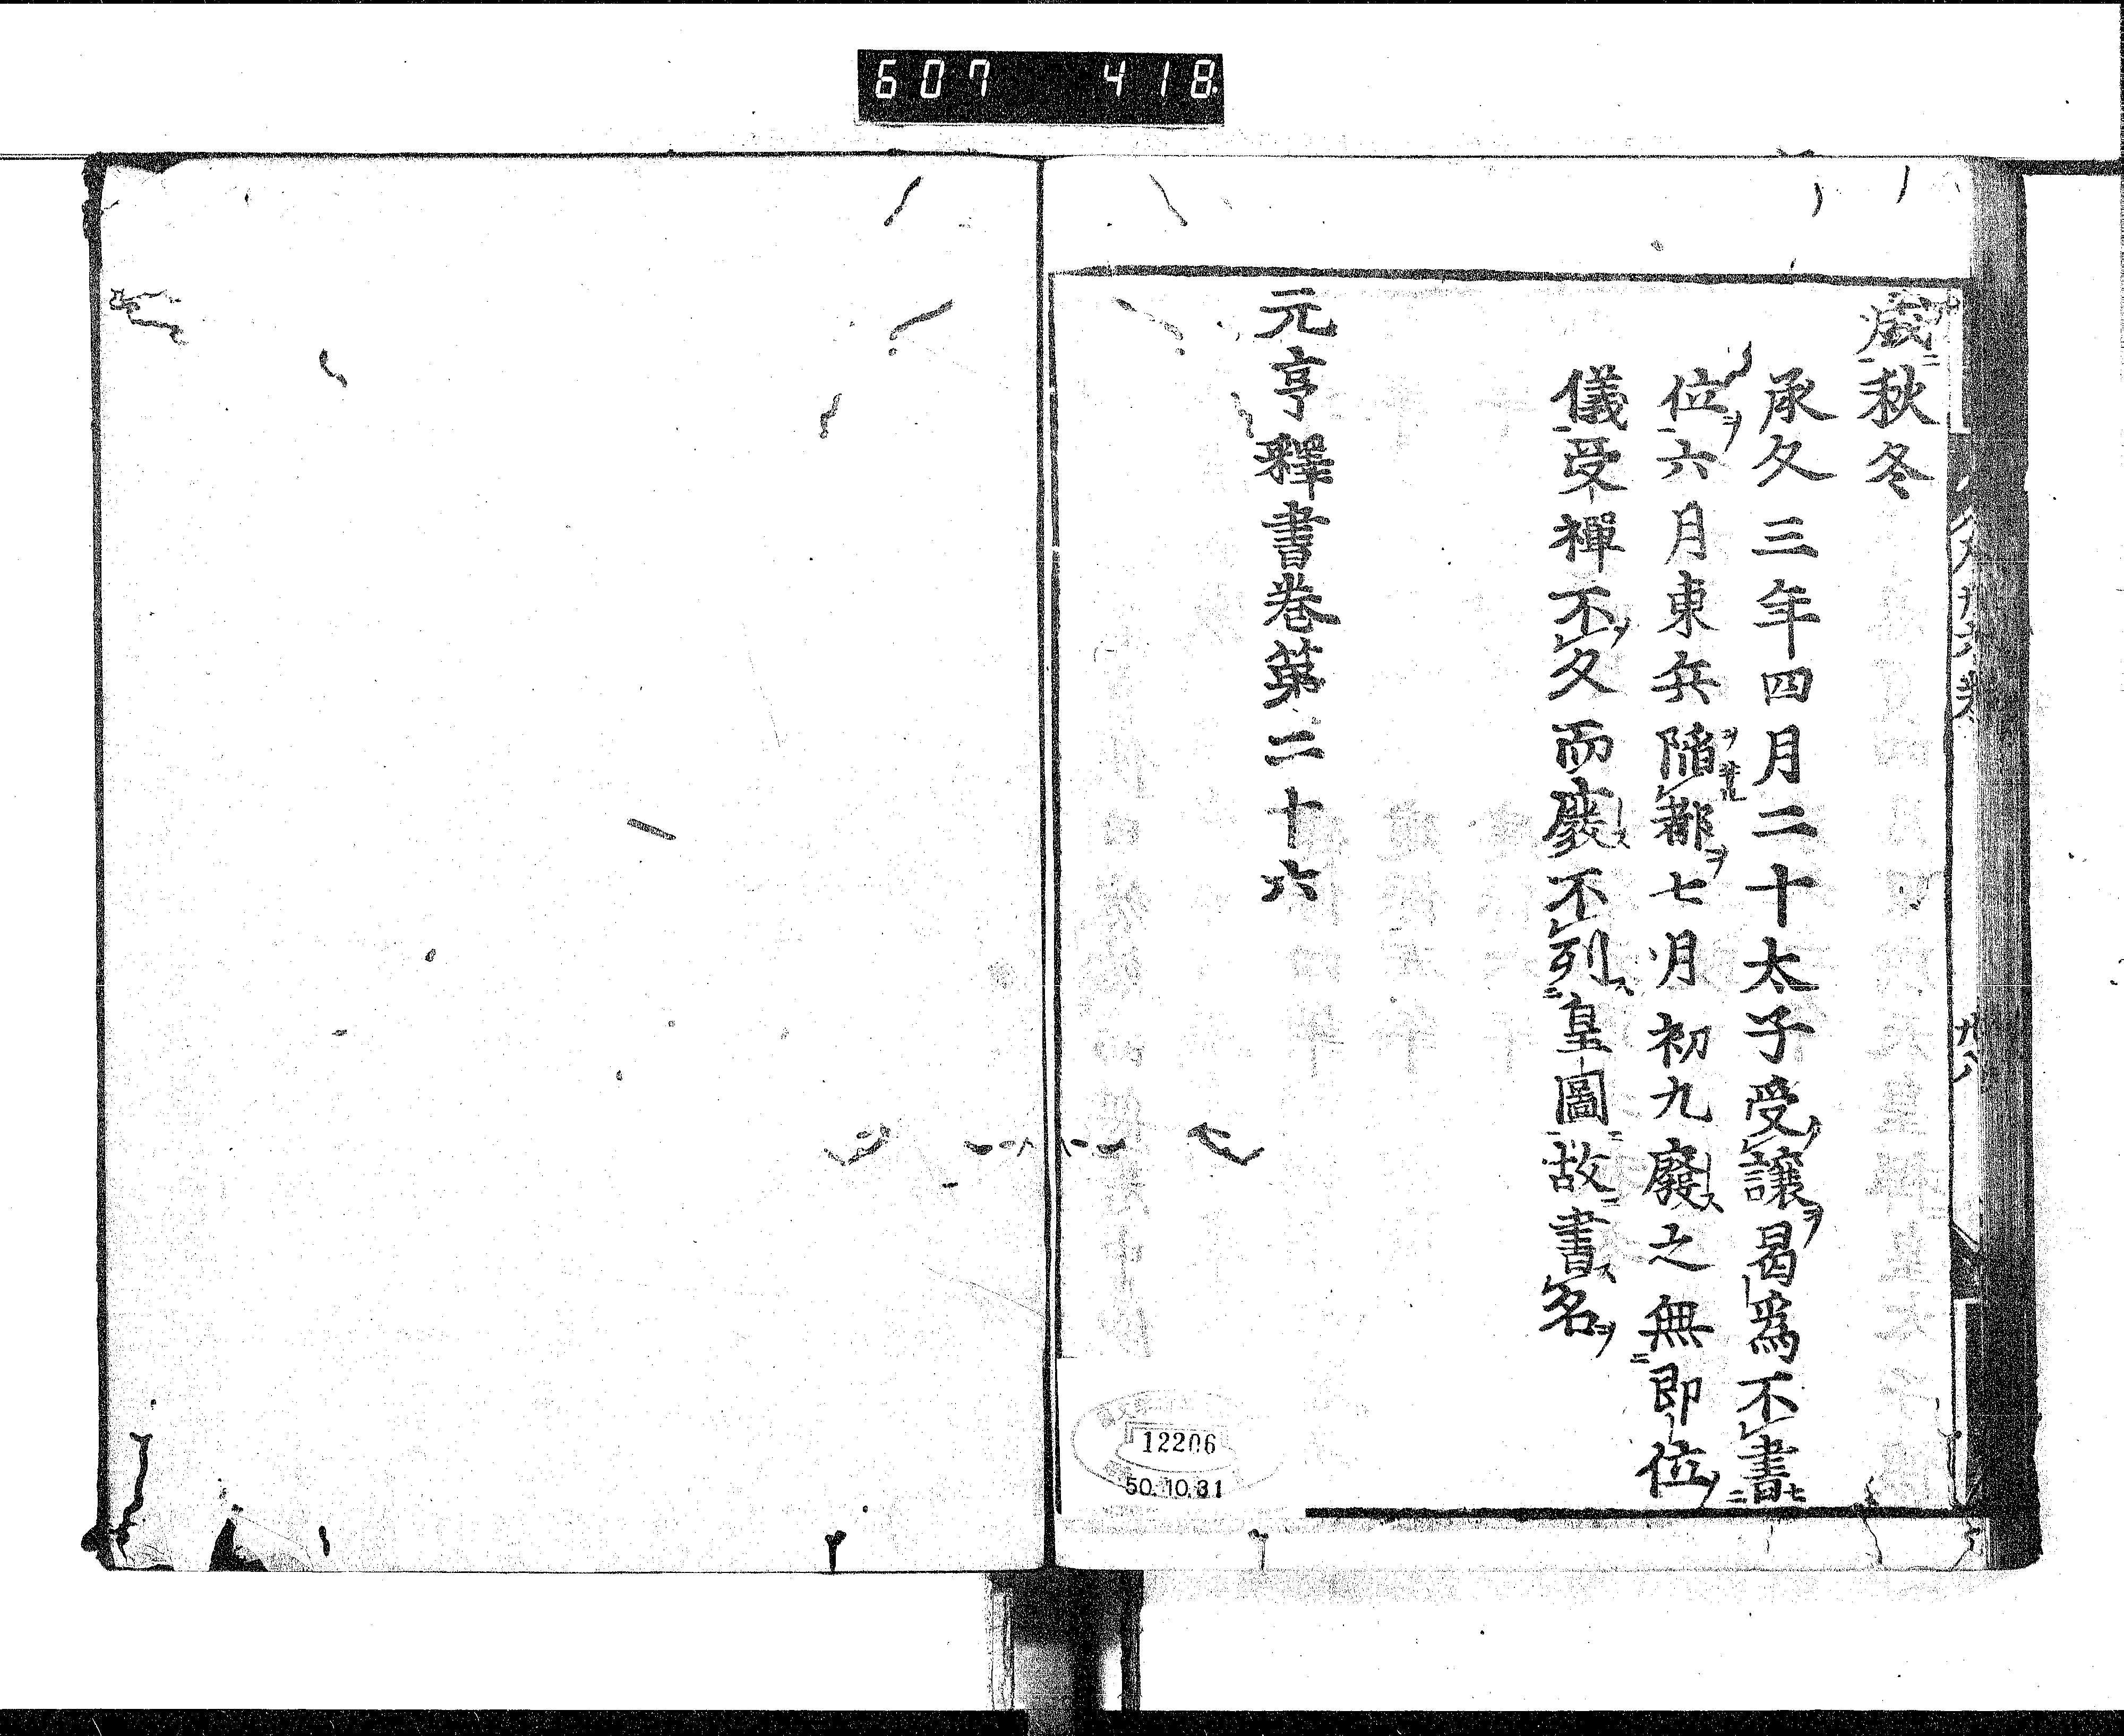 607 418
歳秋冬
承久三年四月二十太子受讓曷爲不書
位六月東兵陥都七月初九廢之無即位
儀受禪不久而廢不列皇圖故書名
元亨釋書卷第二十六
12206
50.10.31